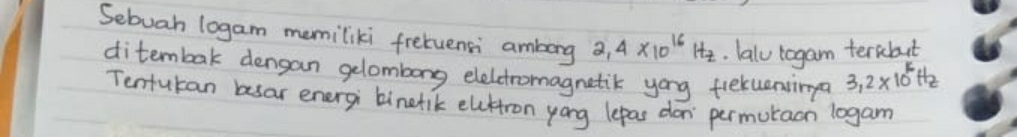 Sebuah logam memiliki frekuensi ambang 2,4 × 10¹⁶ Hz. lalu logam tersebut
ditembak dengan gelombong elektromagnetik yang frekuensinya 3,2 × 10¹⁶ Hz
Tentukan besar energi kinetik elektron yang lepas dari permukaan logam